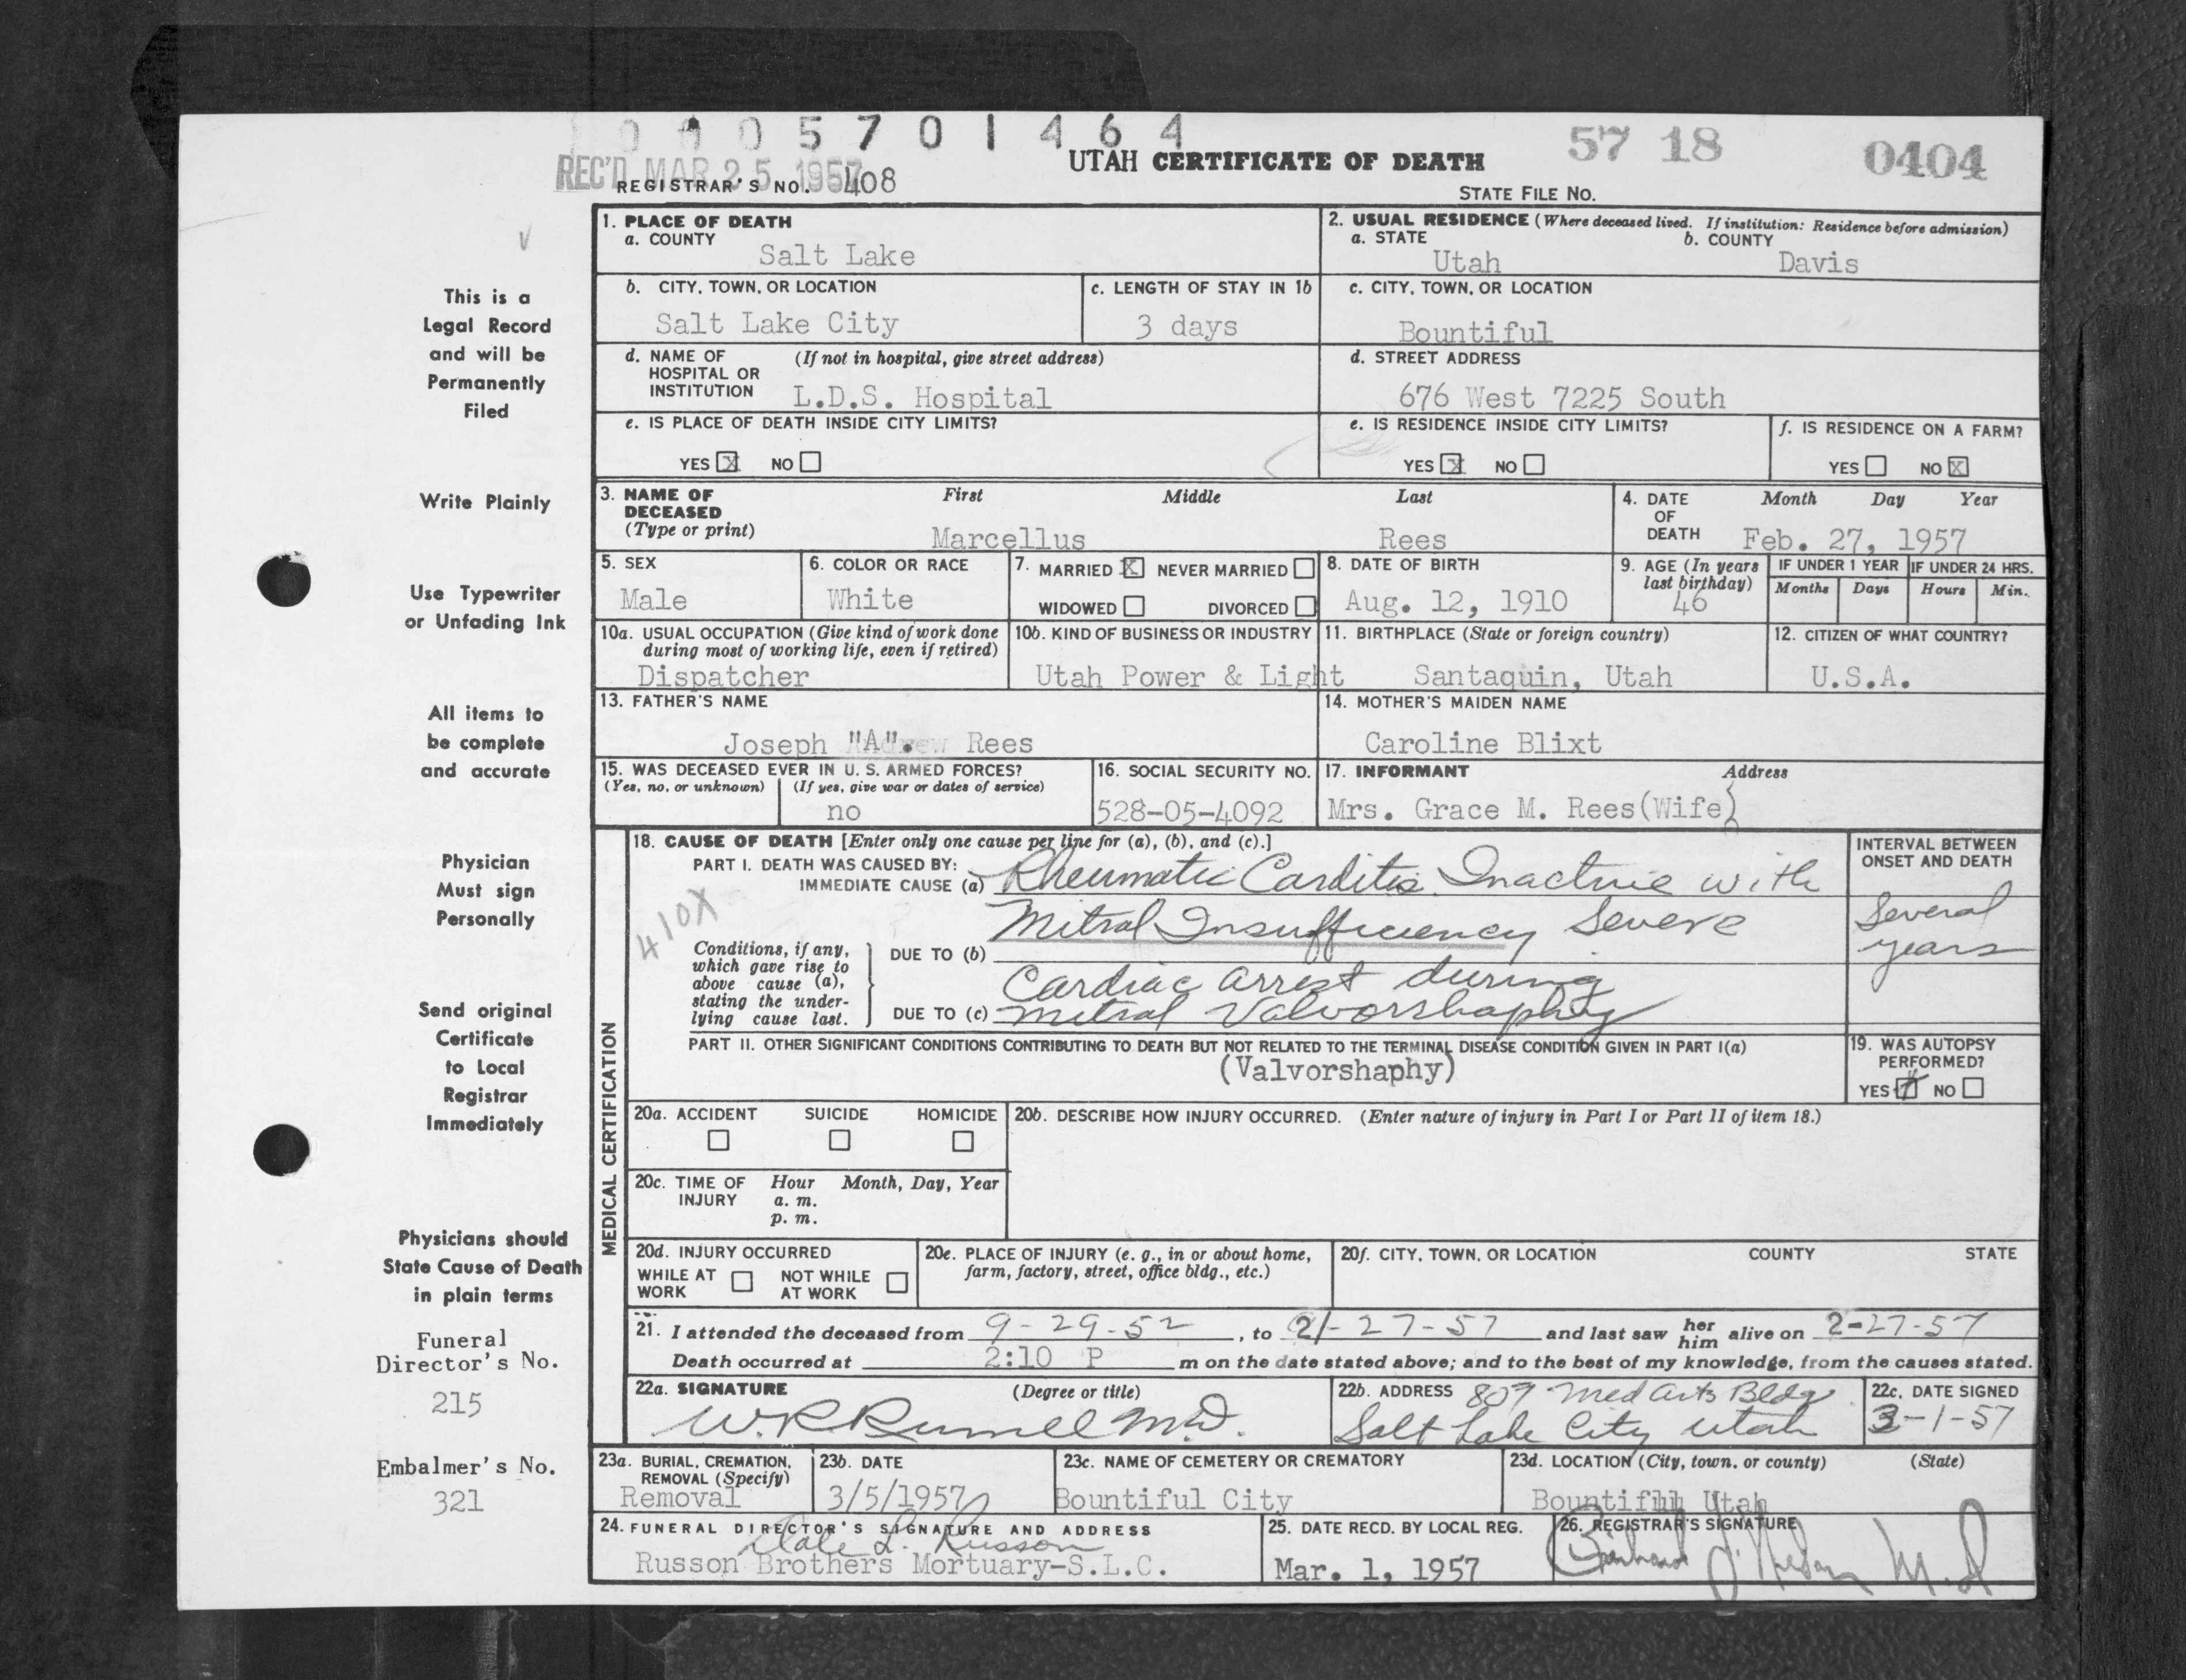 0 0 0 5 7 0 1 4 6 4
REC'D MAR 25 1957
REGISTRAR'S NO. 408
UTAH CERTIFICATE OF DEATH
57 18 0404
STATE FILE NO.
1. PLACE OF DEATH
a. COUNTY
Salt Lake
2. USUAL RESIDENCE (Where deceased lived. If institution: Residence before admission)
a. STATE b. COUNTY
Utah Davis
b. CITY, TOWN, OR LOCATION
Salt Lake City
c. LENGTH OF STAY IN 1b
3 days
c. CITY, TOWN, OR LOCATION
Bountiful
d. NAME OF (If not in hospital, give street address)
HOSPITAL OR
INSTITUTION L.D.S. Hospital
d. STREET ADDRESS
676 West 7225 South
e. IS PLACE OF DEATH INSIDE CITY LIMITS?
YES X NO
e. IS RESIDENCE INSIDE CITY LIMITS?
YES X NO
f. IS RESIDENCE ON A FARM?
YES NO X
3. NAME OF First Middle Last
DECEASED
(Type or print) Marcellus Rees
4. DATE Month Day Year
OF
DEATH Feb. 27, 1957
5. SEX
Male
6. COLOR OR RACE
White
7. MARRIED X NEVER MARRIED
WIDOWED DIVORCED
8. DATE OF BIRTH
Aug. 12, 1910
9. AGE (In years
last birthday)
46
IF UNDER 1 YEAR IF UNDER 24 HRS.
Months Days Hours Min.
10a. USUAL OCCUPATION (Give kind of work done
during most of working life, even if retired)
Dispatcher
10b. KIND OF BUSINESS OR INDUSTRY
Utah Power & Light
11. BIRTHPLACE (State or foreign country)
Santaquin, Utah
12. CITIZEN OF WHAT COUNTRY?
U.S.A.
13. FATHER'S NAME
Joseph "A". Rees
14. MOTHER'S MAIDEN NAME
Caroline Blixt
15. WAS DECEASED EVER IN U. S. ARMED FORCES?
(Yes, no, or unknown) (If yes, give war or dates of service)
no
16. SOCIAL SECURITY NO.
528-05-4092
17. INFORMANT Address
Mrs. Grace M. Rees(Wife)
18. CAUSE OF DEATH [Enter only one cause per line for (a), (b), and (c).]
PART I. DEATH WAS CAUSED BY:
IMMEDIATE CAUSE (a) Rheumatic Carditis Inactive with
Mitral Insufficiency Severe
410X
Conditions, if any,
which gave rise to
above cause (a),
stating the under-
lying cause last.
DUE TO (b)
Cardiac arrest during
DUE TO (c) mitral Valvorshaphy
INTERVAL BETWEEN
ONSET AND DEATH
Several
years
PART II. OTHER SIGNIFICANT CONDITIONS CONTRIBUTING TO DEATH BUT NOT RELATED TO THE TERMINAL DISEASE CONDITION GIVEN IN PART I(a)
(Valvorshaphy)
19. WAS AUTOPSY
PERFORMED?
YES NO
20a. ACCIDENT SUICIDE HOMICIDE
20b. DESCRIBE HOW INJURY OCCURRED. (Enter nature of injury in Part I or Part II of item 18.)
20c. TIME OF Hour Month, Day, Year
INJURY a. m.
p. m.
20d. INJURY OCCURRED
WHILE AT NOT WHILE
WORK AT WORK
20e. PLACE OF INJURY (e. g., in or about home,
farm, factory, street, office bldg., etc.)
20f. CITY, TOWN, OR LOCATION COUNTY STATE
21. I attended the deceased from 9-29-52, to 2-27-57 and last saw her him alive on 2-27-57
Death occurred at 2:10 P m on the date stated above; and to the best of my knowledge, from the causes stated.
22a. SIGNATURE (Degree or title)
W.R Rumel M.D.
22b. ADDRESS 807 Med Arts Bldg
Salt Lake City Utah
22c. DATE SIGNED
3-1-57
23a. BURIAL, CREMATION,
REMOVAL (Specify)
Removal
23b. DATE
3/5/1957
23c. NAME OF CEMETERY OR CREMATORY
Bountiful City
23d. LOCATION (City, town, or county) (State)
Bountiful Utah
24. FUNERAL DIRECTOR'S SIGNATURE AND ADDRESS
Dale L. Russon
Russon Brothers Mortuary-S.L.C.
25. DATE RECD. BY LOCAL REG.
Mar. 1, 1957
26. REGISTRAR'S SIGNATURE
M.D
MEDICAL CERTIFICATION
This is a
Legal Record
and will be
Permanently
Filed
Write Plainly
Use Typewriter
or Unfading Ink
All items to
be complete
and accurate
Physician
Must sign
Personally
Send original
Certificate
to Local
Registrar
Immediately
Physicians should
State Cause of Death
in plain terms
Funeral
Director's No.
215
Embalmer's No.
321